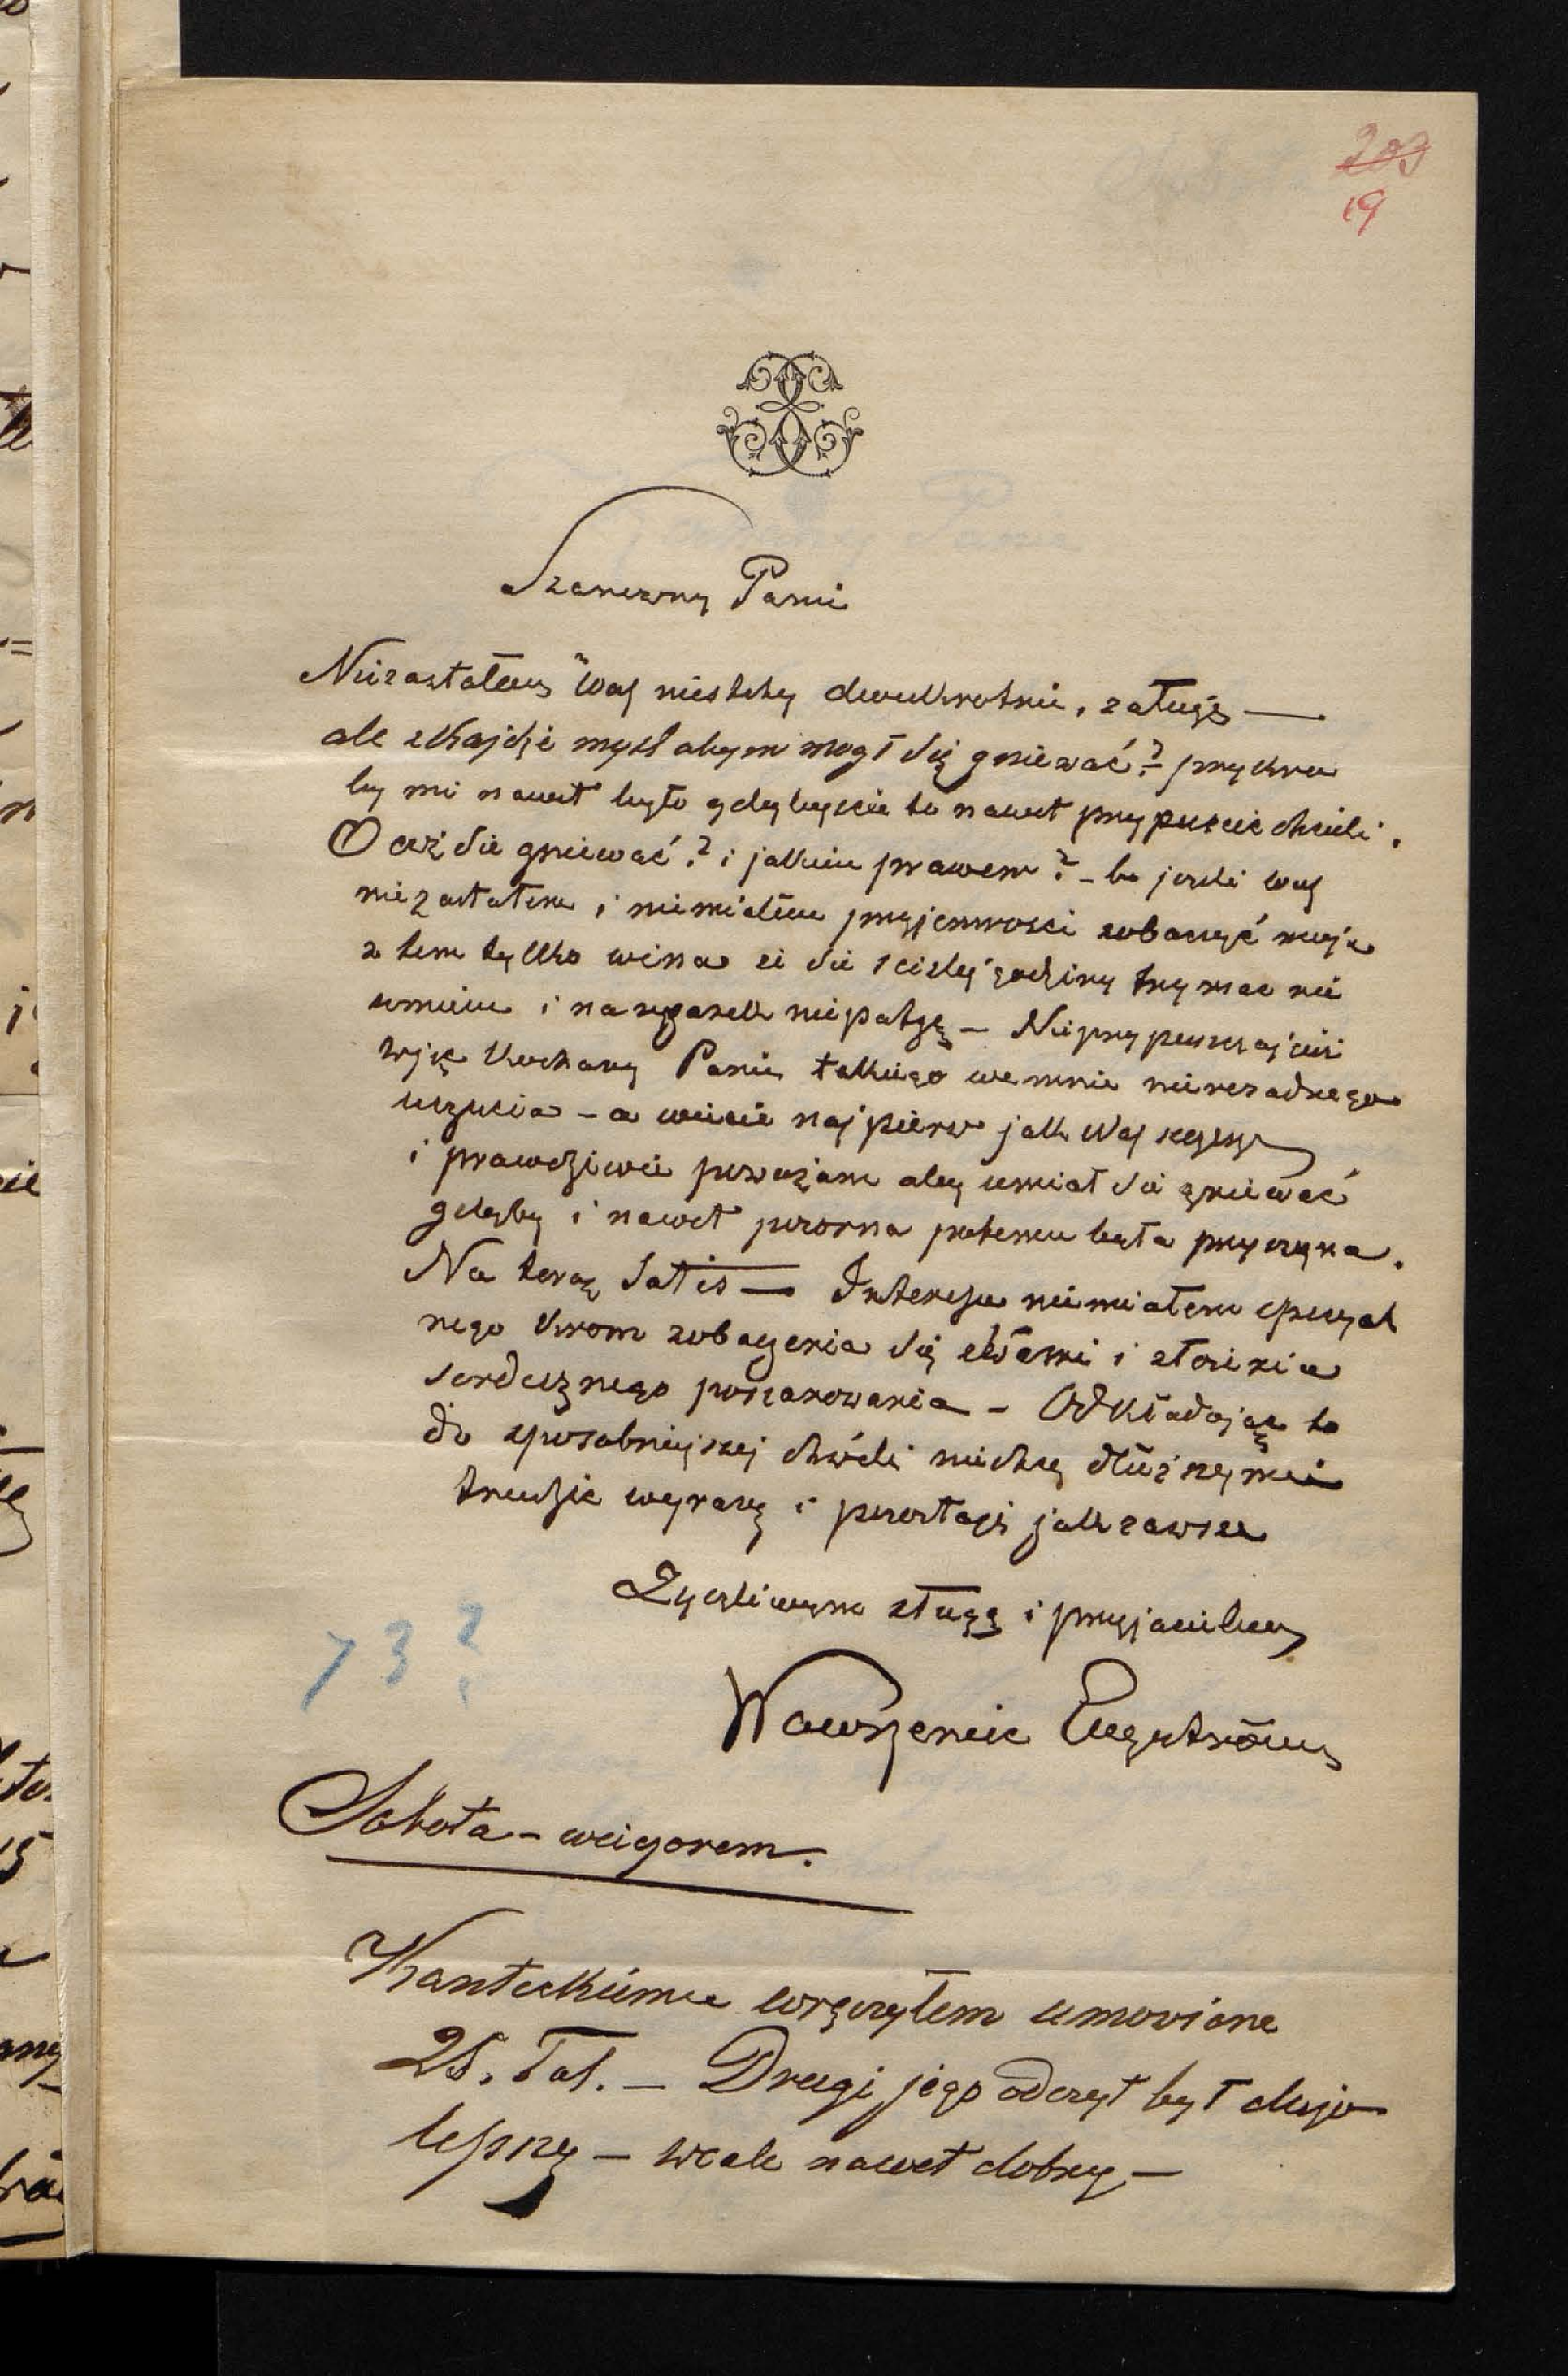 203
19
Szanowny Panie
Niezastałem Was niestety dwukrotnie, załuję —
ale zkądże myśl abym mogł się gniewać? — przykro
by mi nawet było gdybyscie to nawet przypuscic chcieli.
O coż sie gniewać? i jakiem prawem? — bo jesli Was
niezastałem i niemiałem przyjemnosci zobaczyć moja
w tem tylko wina ze sie scisłej godziny trzymac nie
umiem i na zegarek niepatrzę — Nieprzypuszczajciez
Kochany Panie takiego wemnie nierozsadnego
uczucia — a wiecie najpierw jak Was
i prawdziwie powazam abym umiał sie gniewać
gdyby i nawet pozorna potemu była przyczyna.
Na teraz Satis — Interesu niemiałem specyal
nego krom zobaczenia się z Wami i złozenia
serdecznego poszanowania — Odkładając to
do sposobniejszej chwili niechcę dłuznemi
trudzic wyrazy i pozostaję jak zawsze
Zyczliwym sługą i przyjacielem
73?
Wawrzeniec Engeström
Sobota — wieczorem.
Kanteckiemu wręczyłem umowione
25. Tal. — Drugi jego odczyt był duzo
lepszy — wcale nawet dobry —